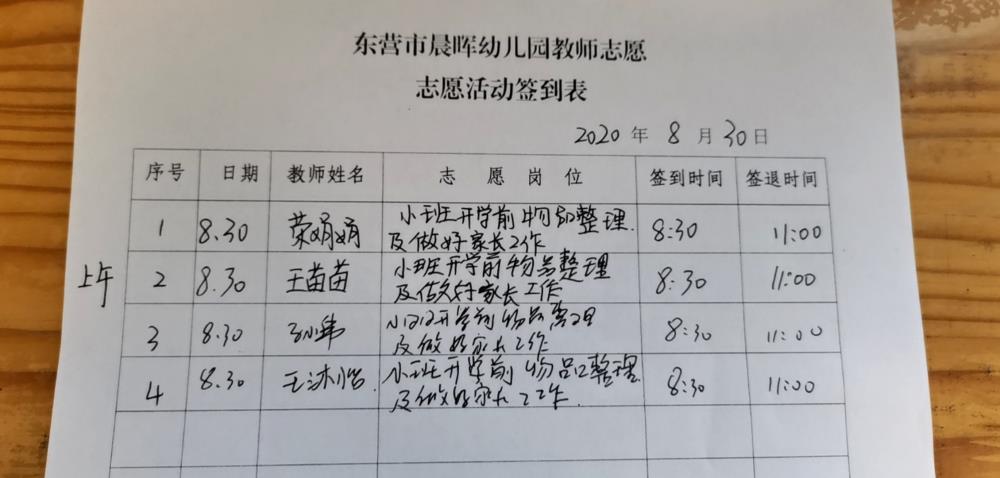 东营市晨晖幼儿园教师志愿
志愿活动签到表
2020 年 8 月 30 日
序号 日期 教师姓名 志愿岗位 签到时间 签退时间
1 8.30 荣娟娟 小班开学前物品整理 8:30 11:00
及做好家长工作
上午
2 8.30 王苗苗 小班开学前物品整理 8:30 11:00
及做好家长工作
3 8.30 小班开学前物品整理 8:30 11:00
及做好家长工作
4 8.30 王沐怡 小班开学前物品整理 8:30 11:00
及做好家长工作